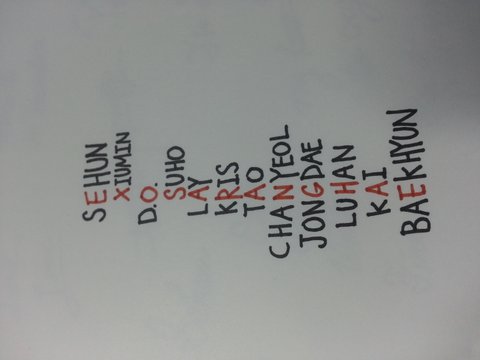 SEHUN
XIUMIN
D.O.
SUHO
LAY
KRIS
TAO
CHANYEOL
JONGDAE
LUHAN
KAI
BAEKHYUN